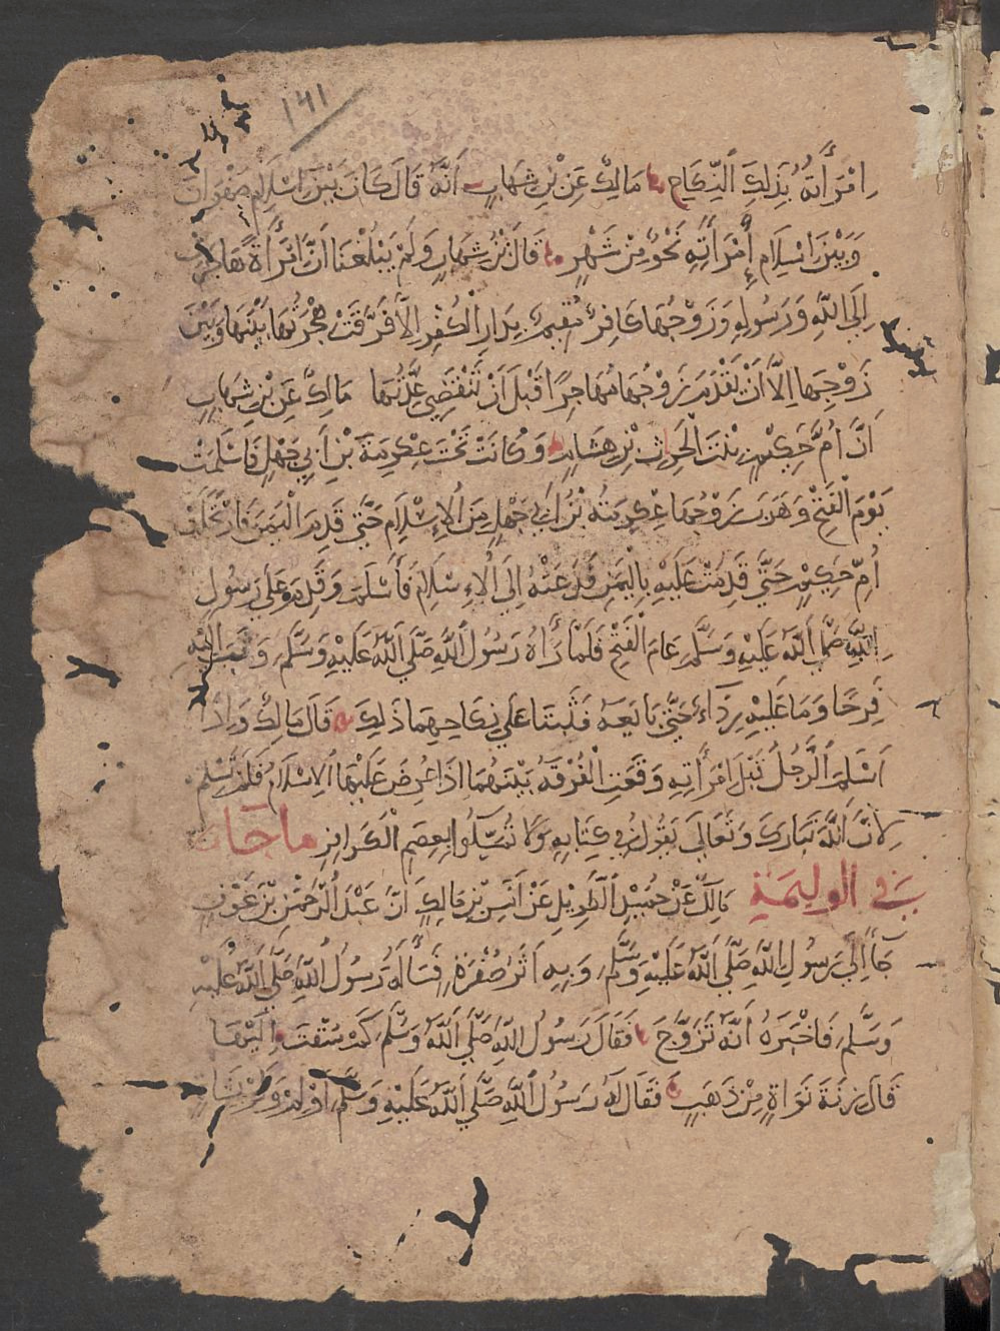 ١٤١
امْرَأَتُهُ بِذَلِكَ النِّكَاحِ مَالِكٌ عَنِ بْنِ شِهَابٍ أَنَّهُ قَالَ كَانَ بَيْنَ اسْلَامِ صَفْوَانَ
وَبَيْنَ اسْلَامِ امْرَأَتِهِ نَحْوٌ مِنْ شَهْرٍ قَالَ بْنُ شِهَابٍ وَلَمْ يَبْلُغْنَا انَّ امْرَأَةً هَاجَرَتْ
الَى اللَّهِ وَرَسُولِهِ وَزَوْجُهَا كَافِرٌ مُقِيمٌ بِدَارِ الْكُفْرِ الَّا فَرَّقَتْ هِجْرَتُهَا بَيْنَهَا وَبَيْنَ
زَوْجِهَا الَّا أَنْ يَقْدَمَ زَوْجُهَا مُهَاجِرًا قَبْلَ أَنْ تَنْقَضِيَ عِدَّتُهَا مَالِكٌ عَنِ بْنِ شِهَابٍ
أَنَّ أُمَّ حَكِيمٍ بِنْتَ الْحَرِثِ بْنِ هِشَامٍ وَكَانَتْ تَحْتَ عِكْرِمَةَ بْنِ أَبِي جَهْلٍ فَاسْلَمَتْ
يَوْمَ الْفَتْحِ وَهَرَبَ زَوْجُهَا عِكْرِمَةُ بْنُ أَبِي جَهْلٍ مِنَ الْإِسْلَامِ حَتَّى قَدِمَ الْيَمَنَ فَارْتَحَلَتْ
أُمُّ حَكِيمٍ حَتَّى قَدِمَتْ عَلَيْهِ بِالْيَمَنِ فَدَعَتْهُ إِلَى الْإِسْلَامِ فَأَسْلَمَ وَقَدِمَ عَلَى رَسُولِ
اللَّهِ صَلَّى اللَّهُ عَلَيْهِ وَسَلَّمَ عَامَ الْفَتْحِ فَلَمَّا رَآهُ رَسُولُ اللَّهِ صَلَّى اللَّهُ عَلَيْهِ وَسَلَّمَ وَثَبَ الَيْهِ
فَرِحًا وَمَا عَلَيْهِ رِدَاءٌ حَتَّى بَايَعَهُ فَثَبَتَا عَلَى نِكَاحِهِمَا ذَلِكَ قَالَ مَالِكٌ وَاذَا
اسْلَمَ الرَّجُلُ قَبْلَ امْرَأَتِهِ وَقَعَتِ الْفُرْقَةُ بَيْنَهُمَا اذَا عُرِضَ عَلَيْهَا الْاسْلَامُ فَلَمْ تُسْلِمْ
لِانَّ اللَّهَ تَبَارَكَ وَتَعَالَى يَقُولُ فِي كِتَابِهِ وَلَا تُمَسِّكُوا بِعِصَمِ الْكَوَافِرِ ما جَاءَ
فِي الوليمَةِ مَالِكٌ عَنْ حُمَيْدٍ الطَّوِيلِ عَنْ أَنَسِ بْنِ مَالِكٍ انَّ عَبْدَ الرَّحْمَنِ بْنَ عَوْفٍ
جَاءَ الَى رَسُولِ اللَّهِ صَلَّى اللَّهُ عَلَيْهِ وَسَلَّمَ وَبِهِ اثَرُ صُفْرَةٍ فَسَأَلَهُ رَسُولُ اللَّهِ صَلَّى اللَّهُ عَلَيْهِ
وَسَلَّمَ فَاخْبَرَهُ أَنَّهُ تَزَوَّجَ فَقَالَ رَسُولُ اللَّهِ صَلَّى اللَّهُ وَسَلَّمَ كَمْ سُقْتَ الَيْهَا
قَالَ زِنَةَ نَوَاةٍ مِنْ ذَهَبٍ فَقَالَ لَهُ رَسُولُ اللَّهِ صَلَّى اللَّهُ عَلَيْهِ وَسَلَّمَ اوْلِمْ وَلَوْ بِشَاةٍ